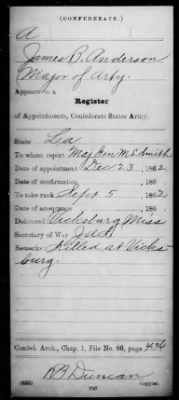 (CONFEDERATE.)
A
James B. Anderson
Major of Arty.
Appears in a
Register
of Appointments, Confederate States Army.
State La
To whom report Maj Gen M. L. Smith
Date of appointment Dec 23, 1862
Date of confirmation , 186
To take rank Sept 5 , 1862
Date of acceptance , 186
Delivered Vicksburg Miss
Secretary of War
Remarks: Killed at Vicks-
burg.
Confed. Arch., Chap. 1, File No. 86, page 436
Duncan
Copyist.